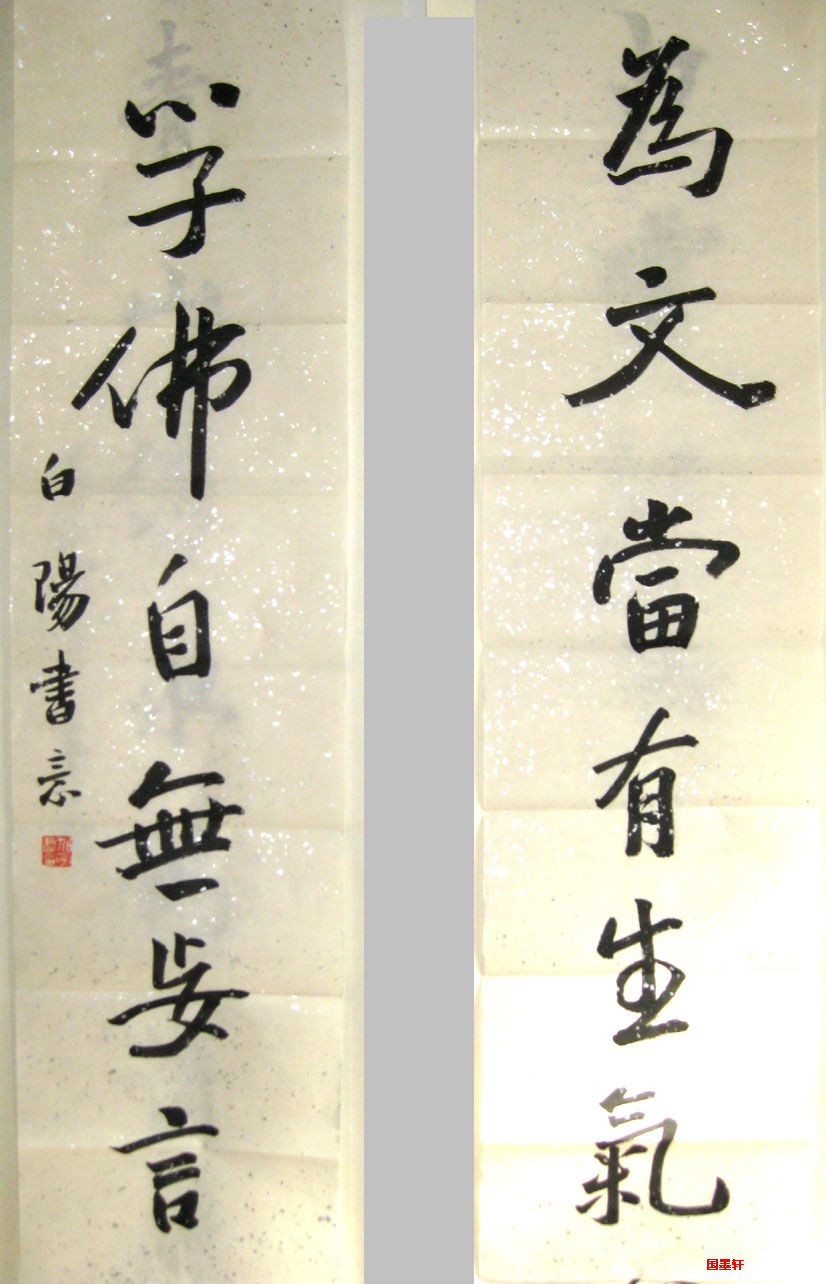 為文當有生氣
学佛自無妄言
白陽書意
国墨轩